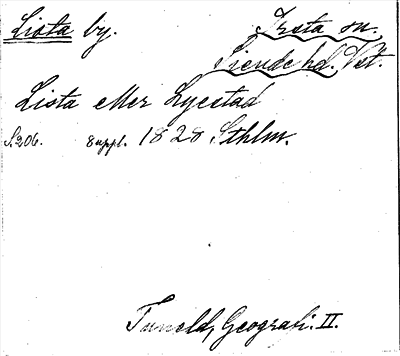 Lista by. Irsta sn.
Siende hd. Vst.
Lista eller Lyestad
S. 206. Suppl. 1828 Sthlm.
Tuneld, Geografi. II.